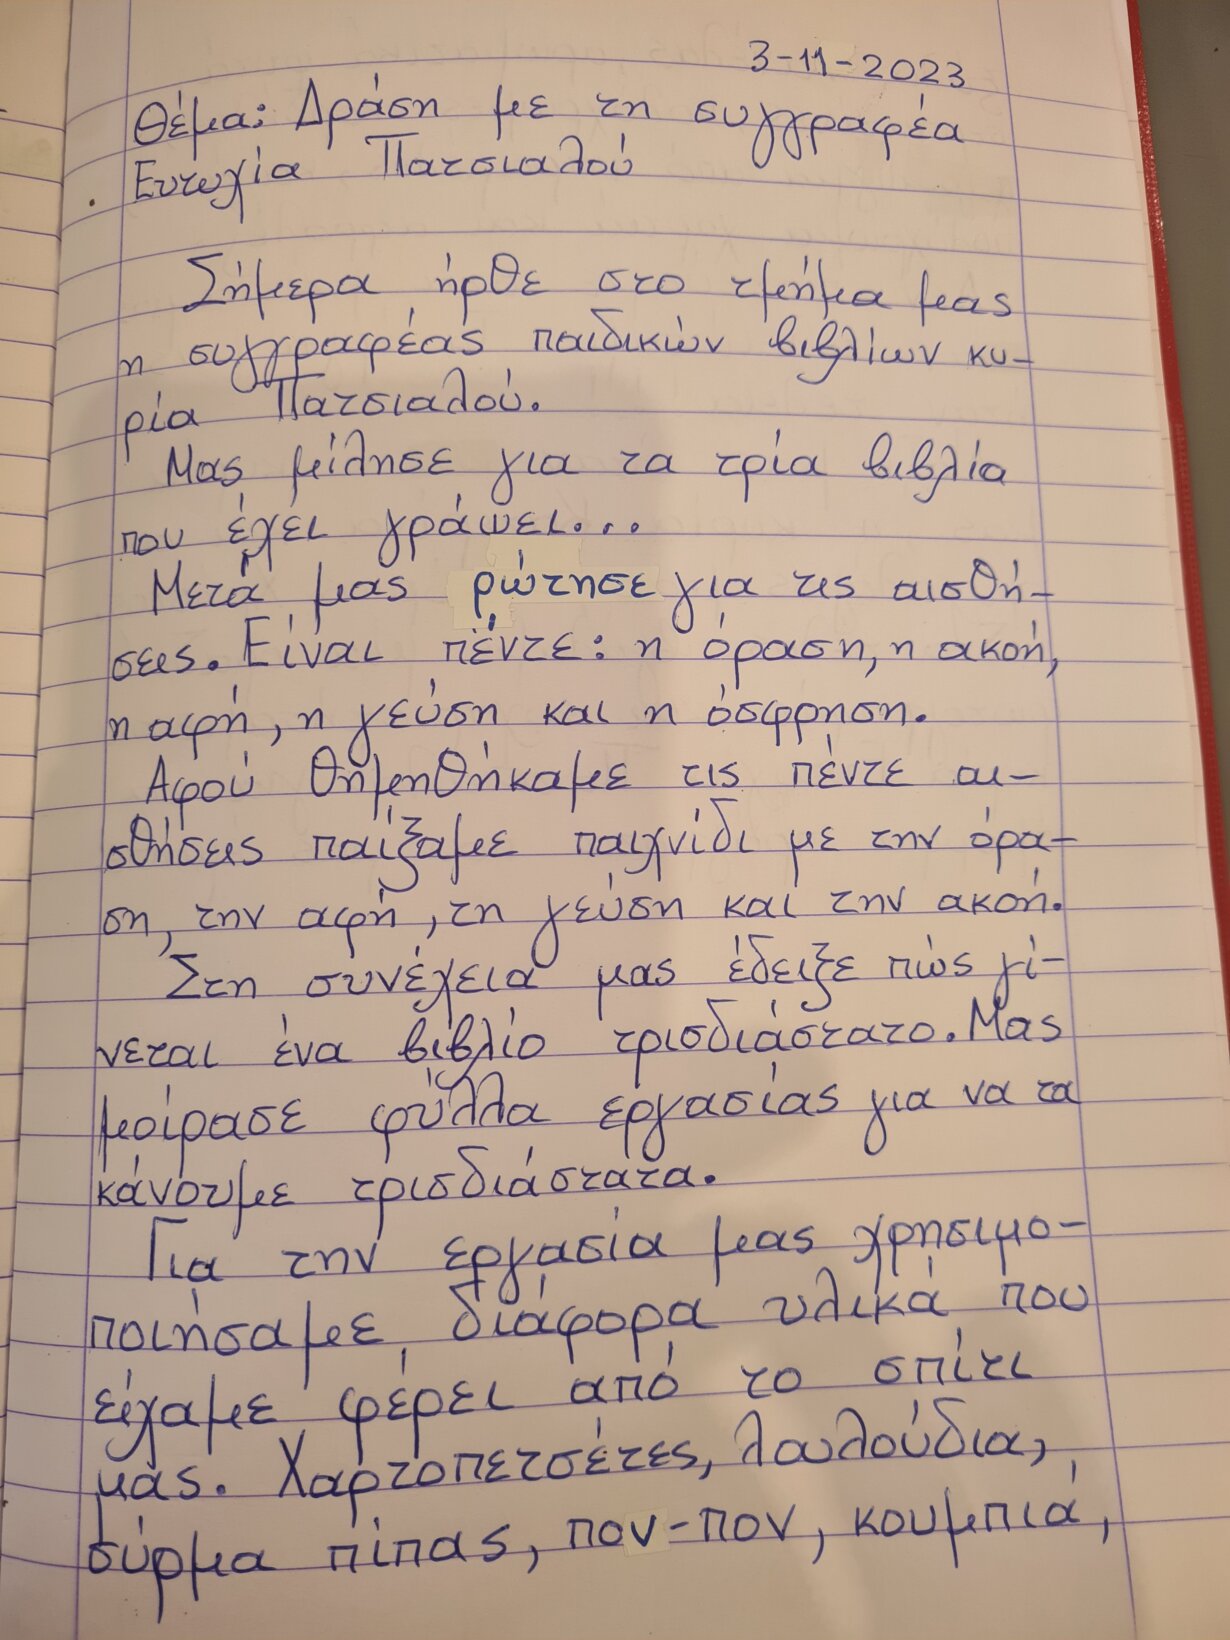 3-11-2023
Θέμα: Δράση με τη συγγραφέα
Ευτυχία Πατσιαλού
Σήμερα ήρθε στο τμήμα μας
η συγγραφέας παιδικών βιβλίων κυ-
ρία Πατσιαλού.
Μας μίλησε για τα τρία βιβλία
που έχει γράψει...
Μετά μας ρώτησε για τις αισθή-
σεις. Είναι πέντε: η όραση, η ακοή,
η αφή, η γεύση και η όσφρηση.
Αφού θημηθήκαμε τις πέντε αι-
σθήσεις παίξαμε παιχνίδι με την όρα-
ση, την αφή, τη γεύση και την ακοή.
Στη συνέχεια μας έδειξε πώς γί-
νεται ένα βιβλίο τρισδιάστατο. Μας
μοίρασε φύλλα εργασίας για να τα
κάνουμε τρισδιάστατα.
Για την εργασία μας χρησιμο-
ποιήσαμε διάφορα υλικά που
είχαμε φέρει από το σπίτι
μας. Χαρτοπετσέτες, λουλούδια,
σύρμα πίπας, πον-πον, κουμπιά,